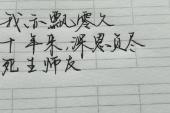 我亦飘零久
十年来，深恩负尽
死生师友